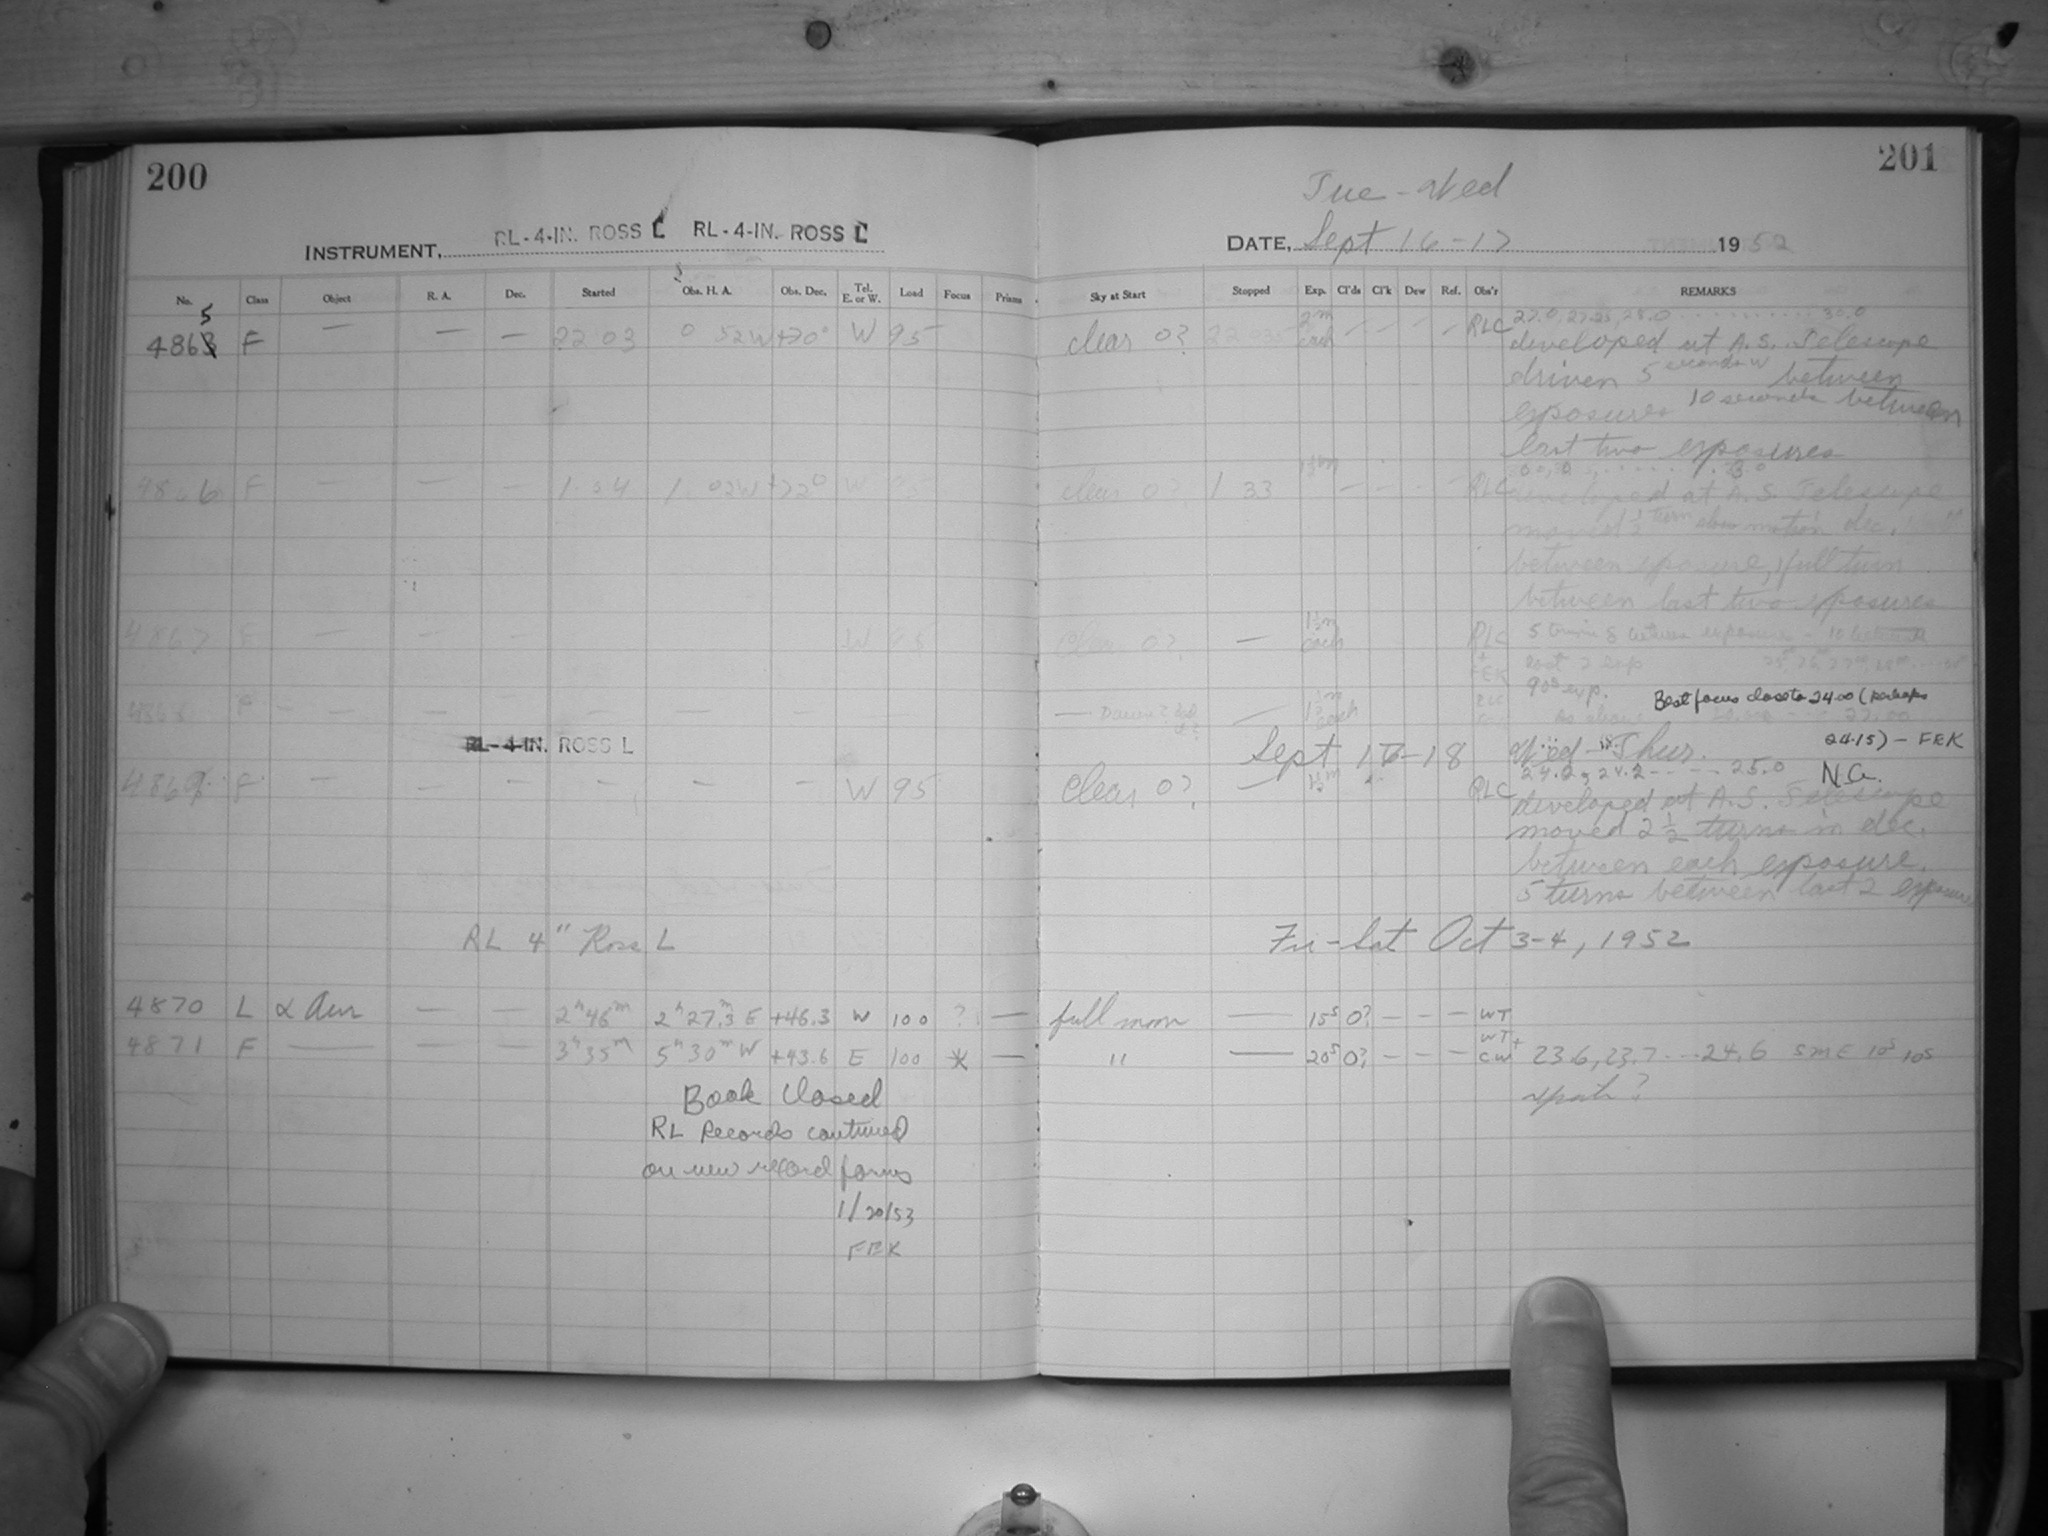 200
201
Tue - Wed
INSTRUMENT, RL-4-IN. ROSS L RL-4-IN. ROSS L
DATE, Sept 16-17 1952
No. Class Object R. A. Dec. Started Obs. H. A. Obs. Dec. Tel. E. or W. Load Focus Prisms Sky at Start Stopped Exp. Cl'ds Cl'k Dew Ref. Obs'r REMARKS
4865 F — — — 22 03 0 52W +20° W 95 clear 0? 2m each — — — — RLC 27.0, 27.25, 28.0 ........ 30.0
developed at A.S. Telescope
driven 5 seconds W between
exposures 10 seconds between
last two exposures
4866 F — — — 1 04 1 02W +22° W clear 0? 1 33 — — — — RLC
developed at A.S. Telescope
moved 1/2 turn slow motion dec.
between exposure, 1 full turn
between last two exposures
4867 F — — — W 95 Clear 0? — 1½m each RLC + FEK
last 2 exp
90s exp.
4868 F — — — — — — — 1½m each As above 27.00
Best focus close to 24.00 (perhaps
24.15) - FEK
RL-4-IN. ROSS L Sept 17-18 Wed - Thur.
4869 F — — — — — — W 95 Clear 0? — 1½m RLC 24.0, 24.2 - - - - 25.0 N.G.
developed at A.S. Telescope
moved 2½ turns in dec.
between each exposure.
5 turns between last 2 exposures
RL 4" Ross L Fri-Sat Oct 3-4, 1952
4870 L α Aur — — 2h46m 2h27.3m E +46.3 W 100 ? — full moon — 15s 0? — — — WT
4871 F — — — 3h35m 5h30m W +43.6 E 100 * — " — 20s 0? — — — WT + CW 23.6, 23.7 .... 24.6 5m E 10s 10s
Book Closed
RL Records continued
on new record forms
1/20/53
FEK